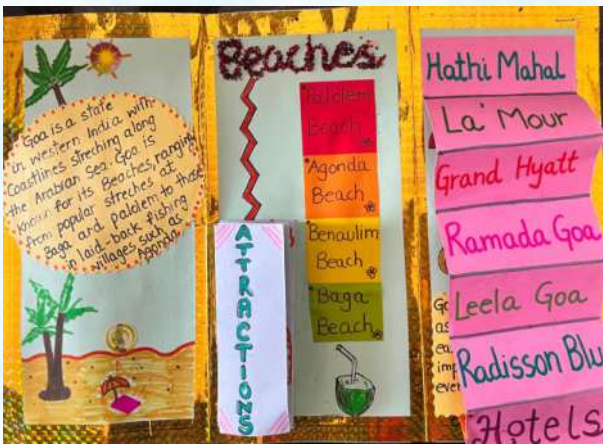 Goa is a state
in western India with
Coastlines streching along
the Arabian Sea. Goa is
Known for its Beaches, ranging
from popular streches at
Baga and palolem to those
in laid-back fishing
villages such as
Agonda.
Beaches
Palolem
Beach
Agonda
Beach
Benaulim
Beach
Baga
Beach
ATTRACTIONS
Hathi Mahal
La' Mour
Grand Hyatt
Ramada Goa
Leela Goa
Radisson Blu
Hotels